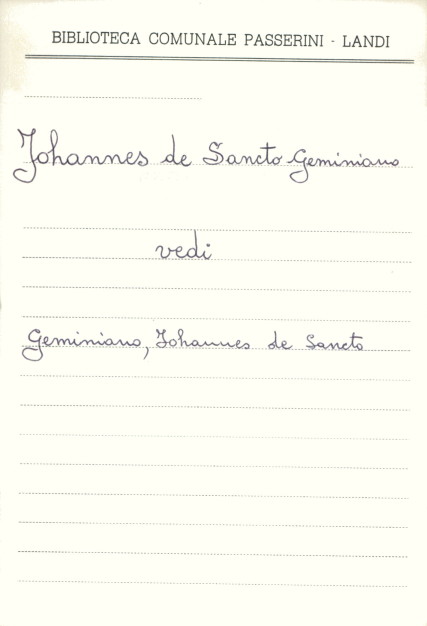 BIBLIOTECA COMUNALE PASSERINI - LANDI
Johannes de Sancto Geminiano
vedi
Geminiano, Johannes de Sancto